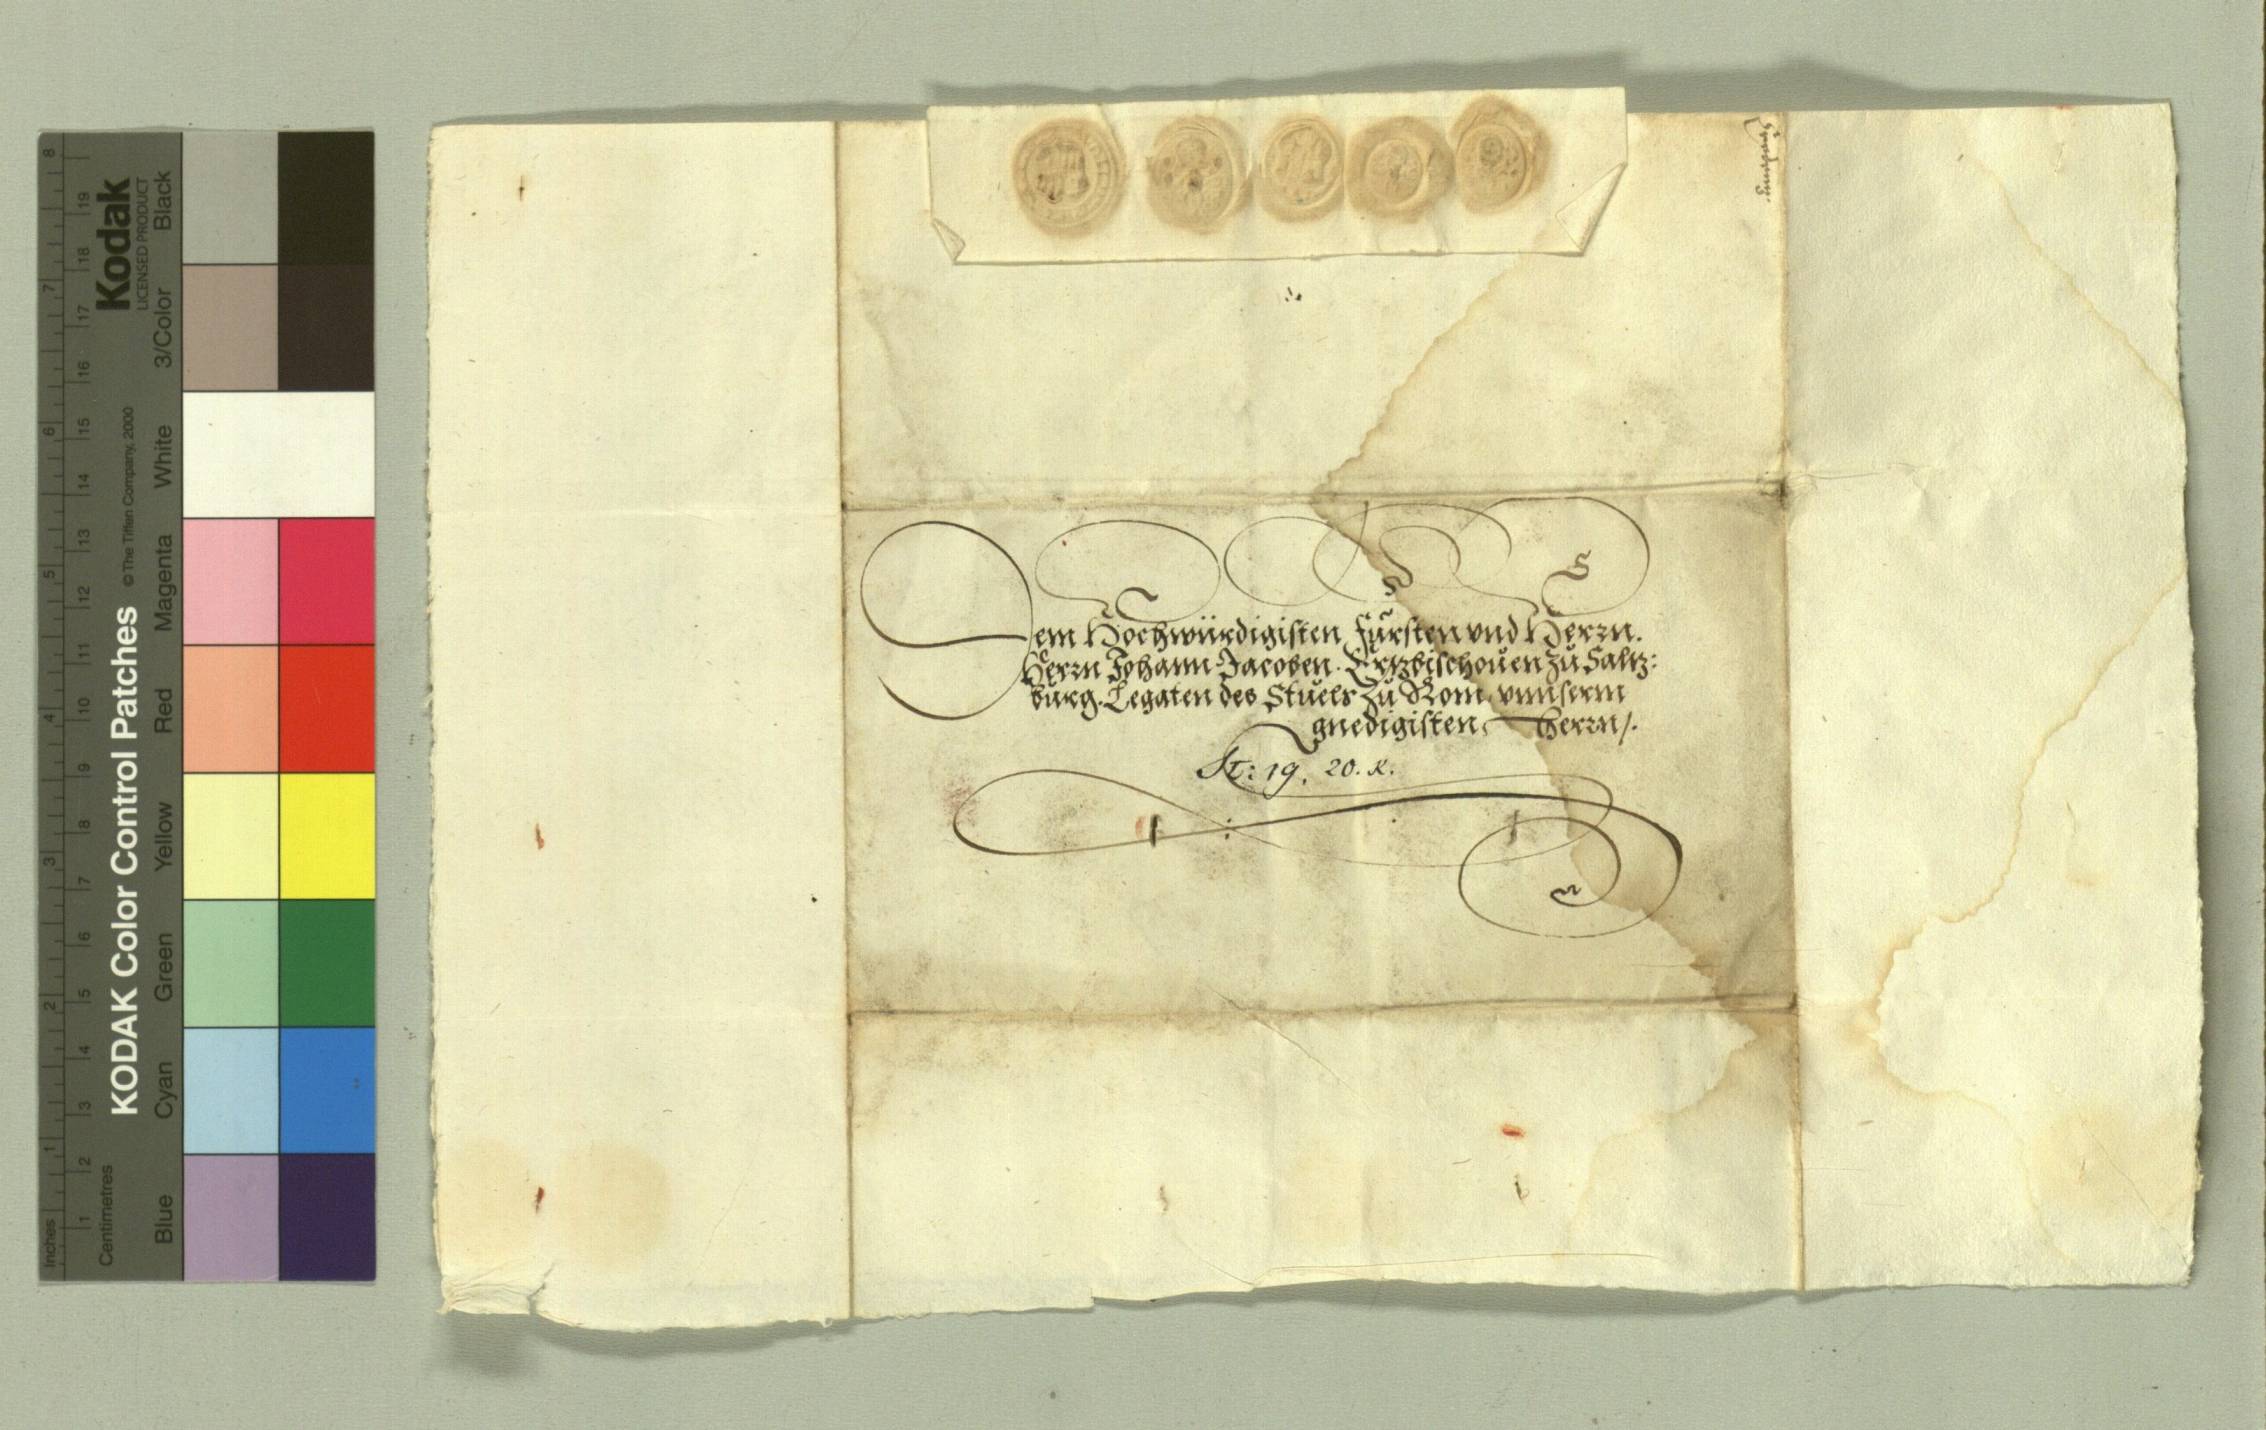 Dem Hochwürdigisten Fürsten vnd Herrn.
Herrn Johann Jacoben. Ertzbischouen zu Saltz:
burg. Legaten des Stuels Zu Rom, vnnserm
gnedigisten Herrn/.
St: 19. 20. K.
KODAK Color Control Patches
© The Tiffen Company, 2000
Kodak
LICENSED PRODUCT
Inches
1 2 3 4 5 6 7 8
Centimetres
1 2 3 4 5 6 7 8 9 10 11 12 13 14 15 16 17 18 19
Blue Cyan Green Yellow Red Magenta White 3/Color Black